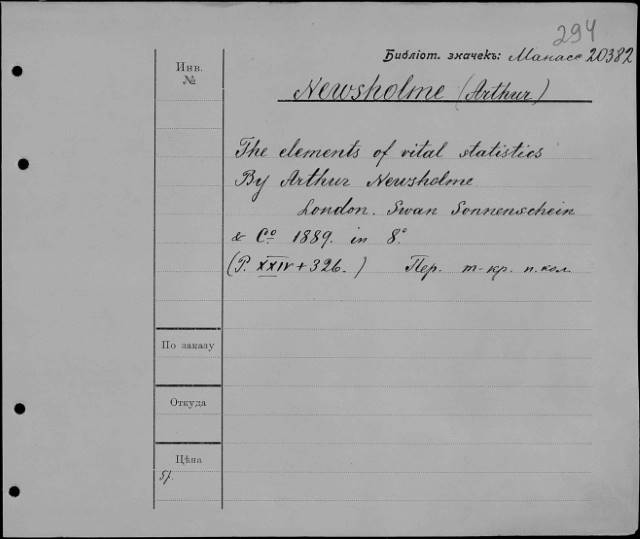 294
Библіот. значекъ: Манасе 20382
Инв.
№
Newsholme (Arthur)
The elements of vital statistics
By Arthur Newsholme
London. Swan Sonnenschein
& Cº 1889. in 8.º
(P. XXIV + 326.) Пер. т-кр. п. кол.
По заказу
Откуда
Цѣна